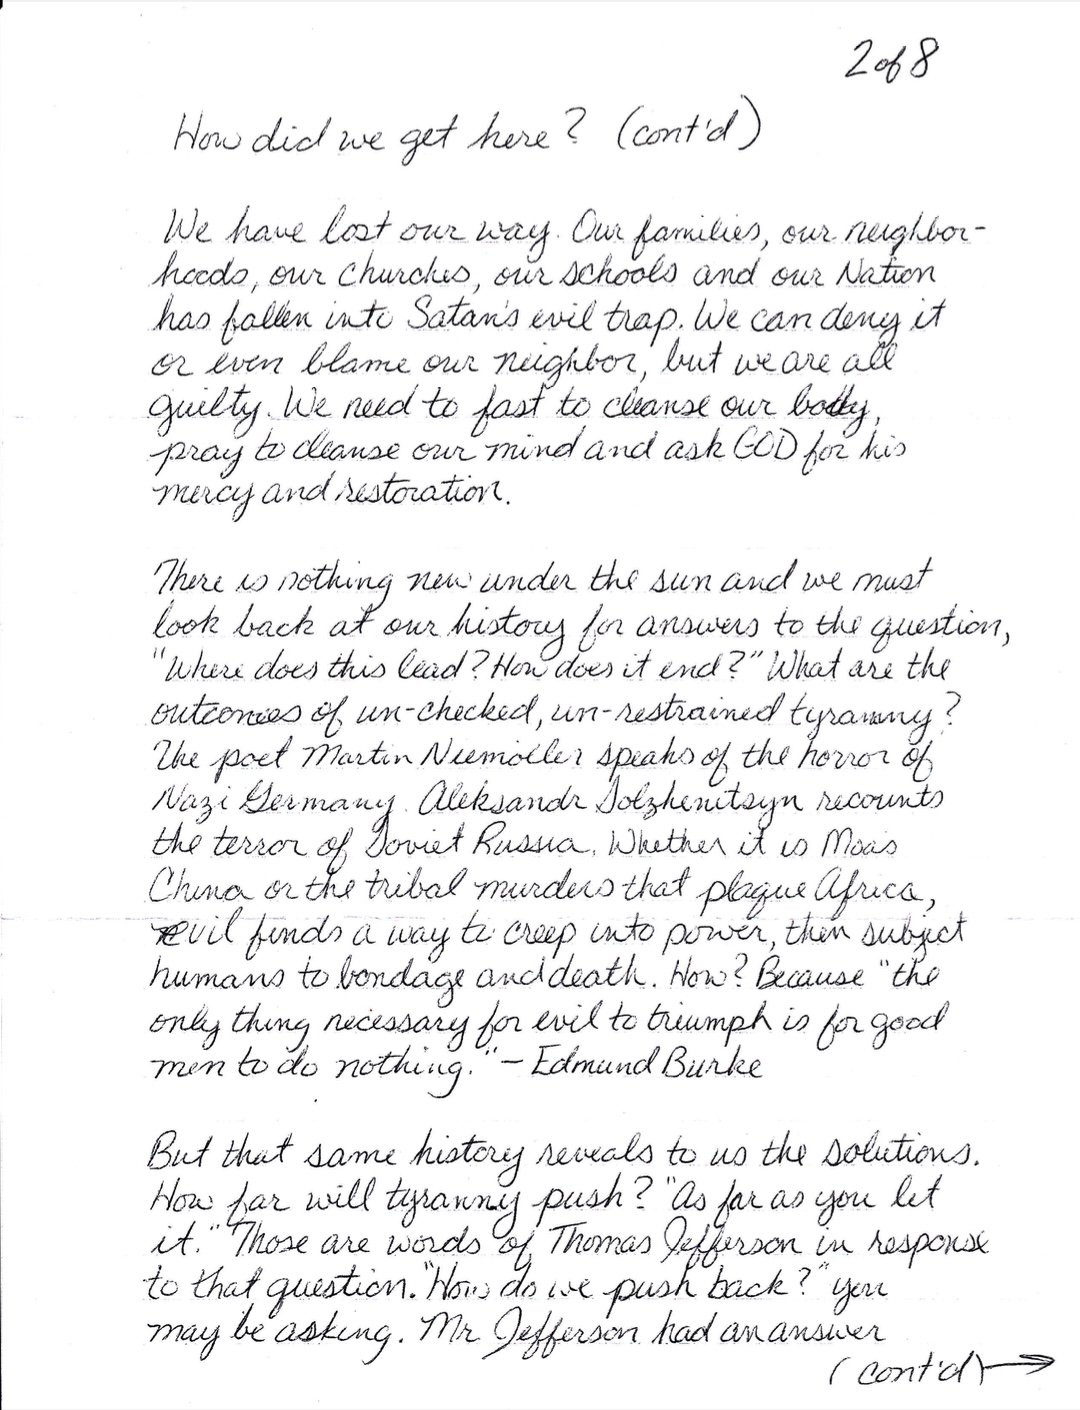 2 of 8
How did we get here? (cont'd)
We have lost our way. Our families, our neighbor-
hoods, our churches, our schools and our Nation
has fallen into Satan's evil trap. We can deny it
or even blame our neighbor, but we are all
guilty. We need to fast to cleanse our body,
pray to cleanse our mind and ask GOD for his
mercy and restoration.
There is nothing new under the sun and we must
look back at our history for answers to the question,
"Where does this lead? How does it end?" What are the
outcomes of un-checked, un-restrained tyranny?
The poet Martin Niemöller speaks of the horror of
Nazi Germany. Aleksandr Solzhenitsyn recounts
the terror of Soviet Russia. Whether it is Maos
China or the tribal murders that plague Africa,
evil finds a way to creep into power, then subject
humans to bondage and death. How? Because "the
only thing necessary for evil to triumph is for good
men to do nothing." - Edmund Burke
But that same history reveals to us the solutions.
How far will tyranny push? "As far as you let
it." Those are words of Thomas Jefferson in response
to that question. "How do we push back?" you
may be asking. Mr Jefferson had an answer
(cont'd) →